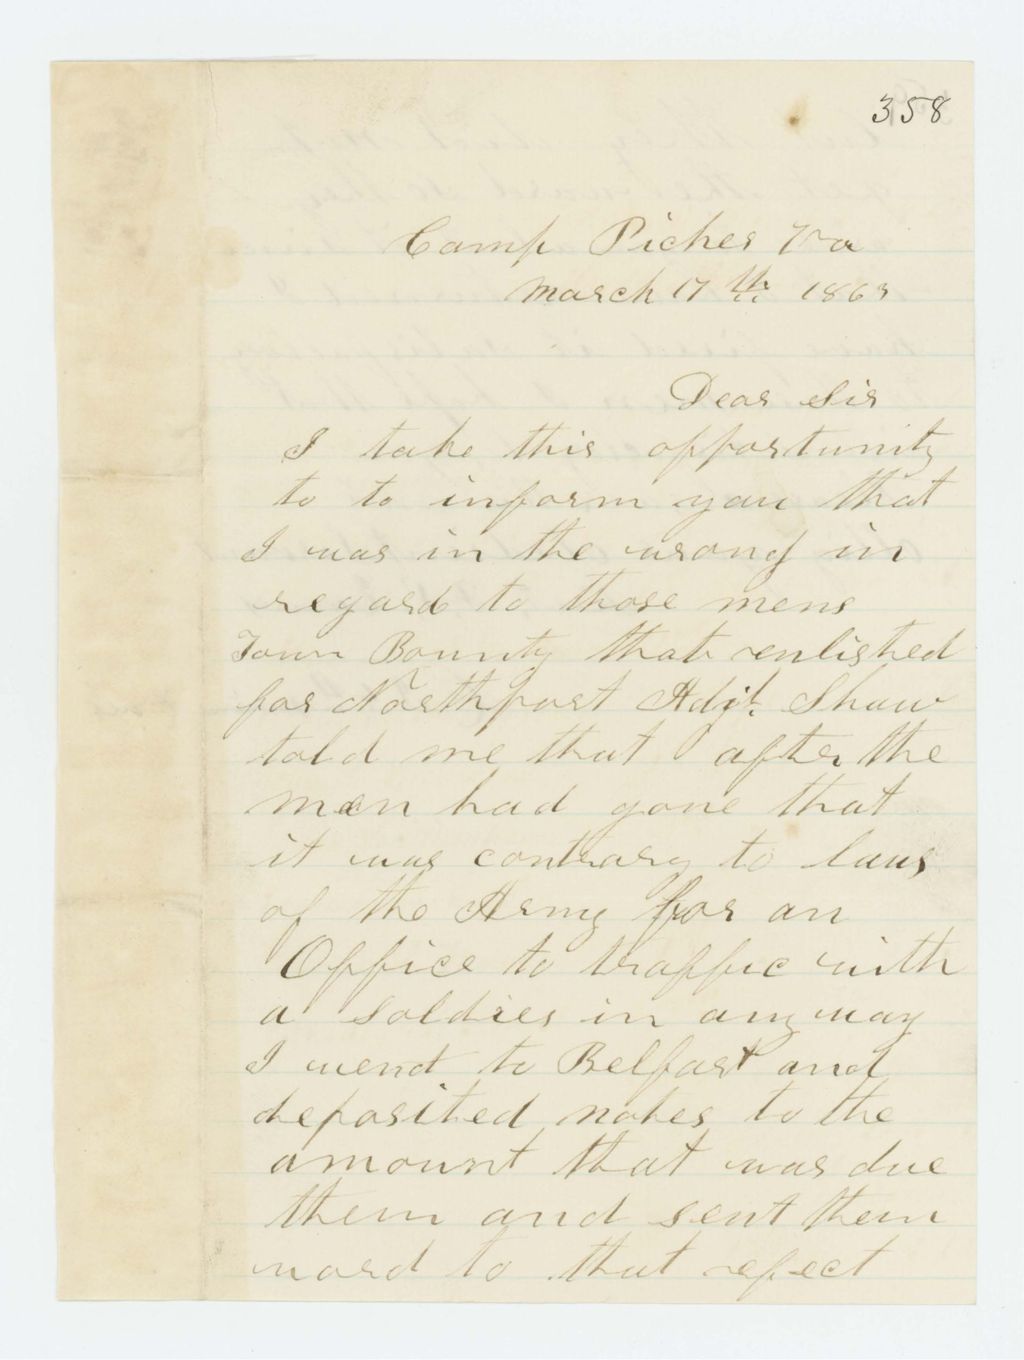 358
Camp Picher Va
March 17th 1863
Dear Sir
I take this opportunity
to to inform you that
I was in the wrong in
regard to those mens
Town Bounty that enlisted
for Northport Adjt. Shaw
told me that after the
men had gone that
it was contrary to laws
of the Army for an
Office to traffic with
a soldier in any way
I wend to Belfast and
deposited notes to the
amount that was due
them and sent them
word to that effect